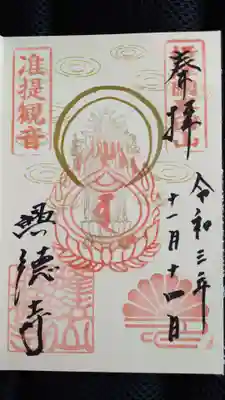 奉拝
令和三年
十一月十四日
准提観音
照徳寺